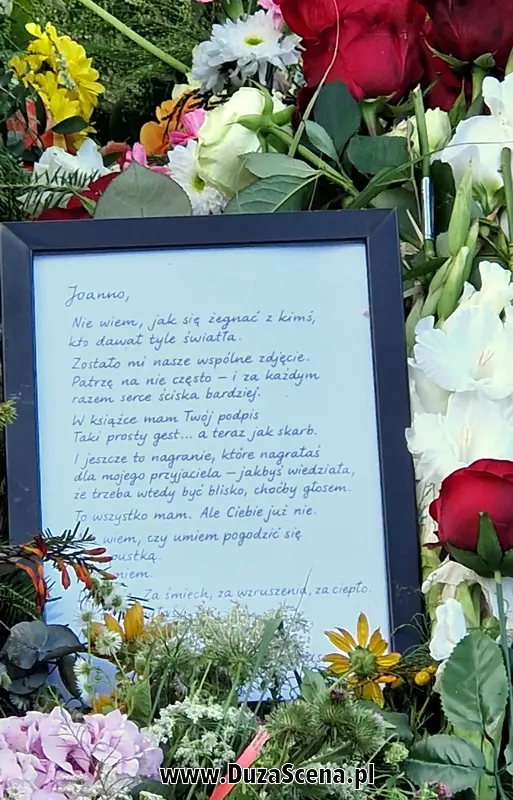 Joanno,
Nie wiem, jak się żegnać z kimś,
kto dawał tyle światła.
Zostało mi nasze wspólne zdjęcie.
Patrzę na nie często – i za każdym
razem serce ściska bardziej.
W książce mam Twój podpis
Taki prosty gest... a teraz jak skarb.
I jeszcze to nagranie, które nagrałaś
dla mojego przyjaciela – jakbyś wiedziała,
że trzeba wtedy być blisko, choćby głosem.
To wszystko mam. Ale Ciebie już nie.
wiem, czy umiem pogodzić się
Za śmiech, za wzruszenia, za ciepło.
www.DuzaScena.pl